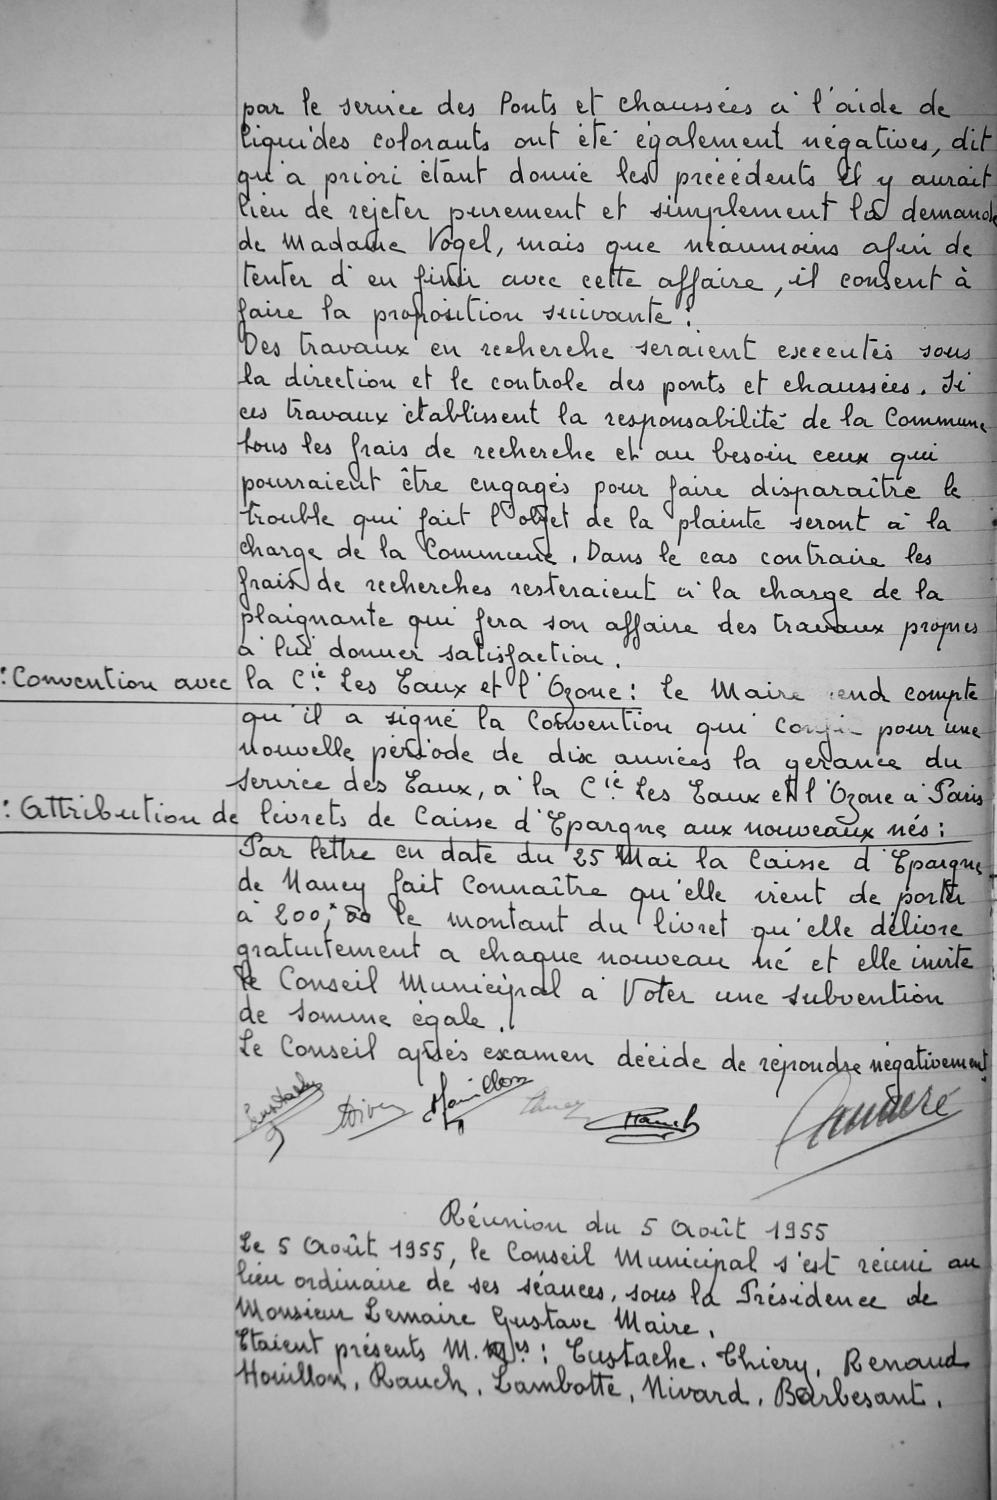 par le service des Ponts et chaussées à l'aide de
liquides colorants ont été également négatives, dit
qu'a priori étant donné les précédents il y aurait
lieu de rejeter purement et simplement la demande
de Madame Vogel, mais que néaumoins afin de
tenter d'en finir avec cette affaire, il consent à
faire la proposition suivante :
Des travaux en recherche seraient exécutés sous
la direction et le controle des ponts et chaussées. Si
ces travaux établissent la responsabilité de la Commune
tous les frais de recherche et au besoin ceux qui
pourraient être engagés pour faire disparaître le
trouble qui fait l'objet de la plainte seront à la
charge de la Commune. Dans le cas contraire les
frais de recherches resteraient à la charge de la
plaignante qui fera son affaire des travaux propres
à lui donner satisfaction.
: Convention avec la Cie. Les Eaux et l'Ozone : Le Maire rend compte
qu'il a signé la Convention qui pour une
nouvelle période de dix années la gérance du
service des Eaux, à la Cie. Les Eaux et l'Ozone à Paris
: Attribution de livrets de Caisse d'Epargne aux nouveaux nés :
Par lettre en date du 25 Mai la Caisse d'Epargne
de Nancy fait Connaître qu'elle vient de porter
à 200, le montant du livret qu'elle délivre
gratuitement a chaque nouveau né et elle invite
le Conseil Municipal à Voter une subvention
de somme égale.
Le Conseil après examen décide de répondre négativement.
Eustache Houillon Rauch Lemaire
Réunion du 5 Août 1955
Le 5 Août 1955, le Conseil Municipal s'est réuni au
lieu ordinaire de ses séances, sous la Présidence de
Monsieur Lemaire Gustave Maire.
Etaient présents M. : Eustache. Thiery, Renaud
Houillon, Rauch, Lambotte, Nivard, Barbesant.